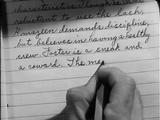 reluctant to use the lash,
demands discipline,
but believes in having a healthy
crew. Foster is a sneak and
a coward. The me